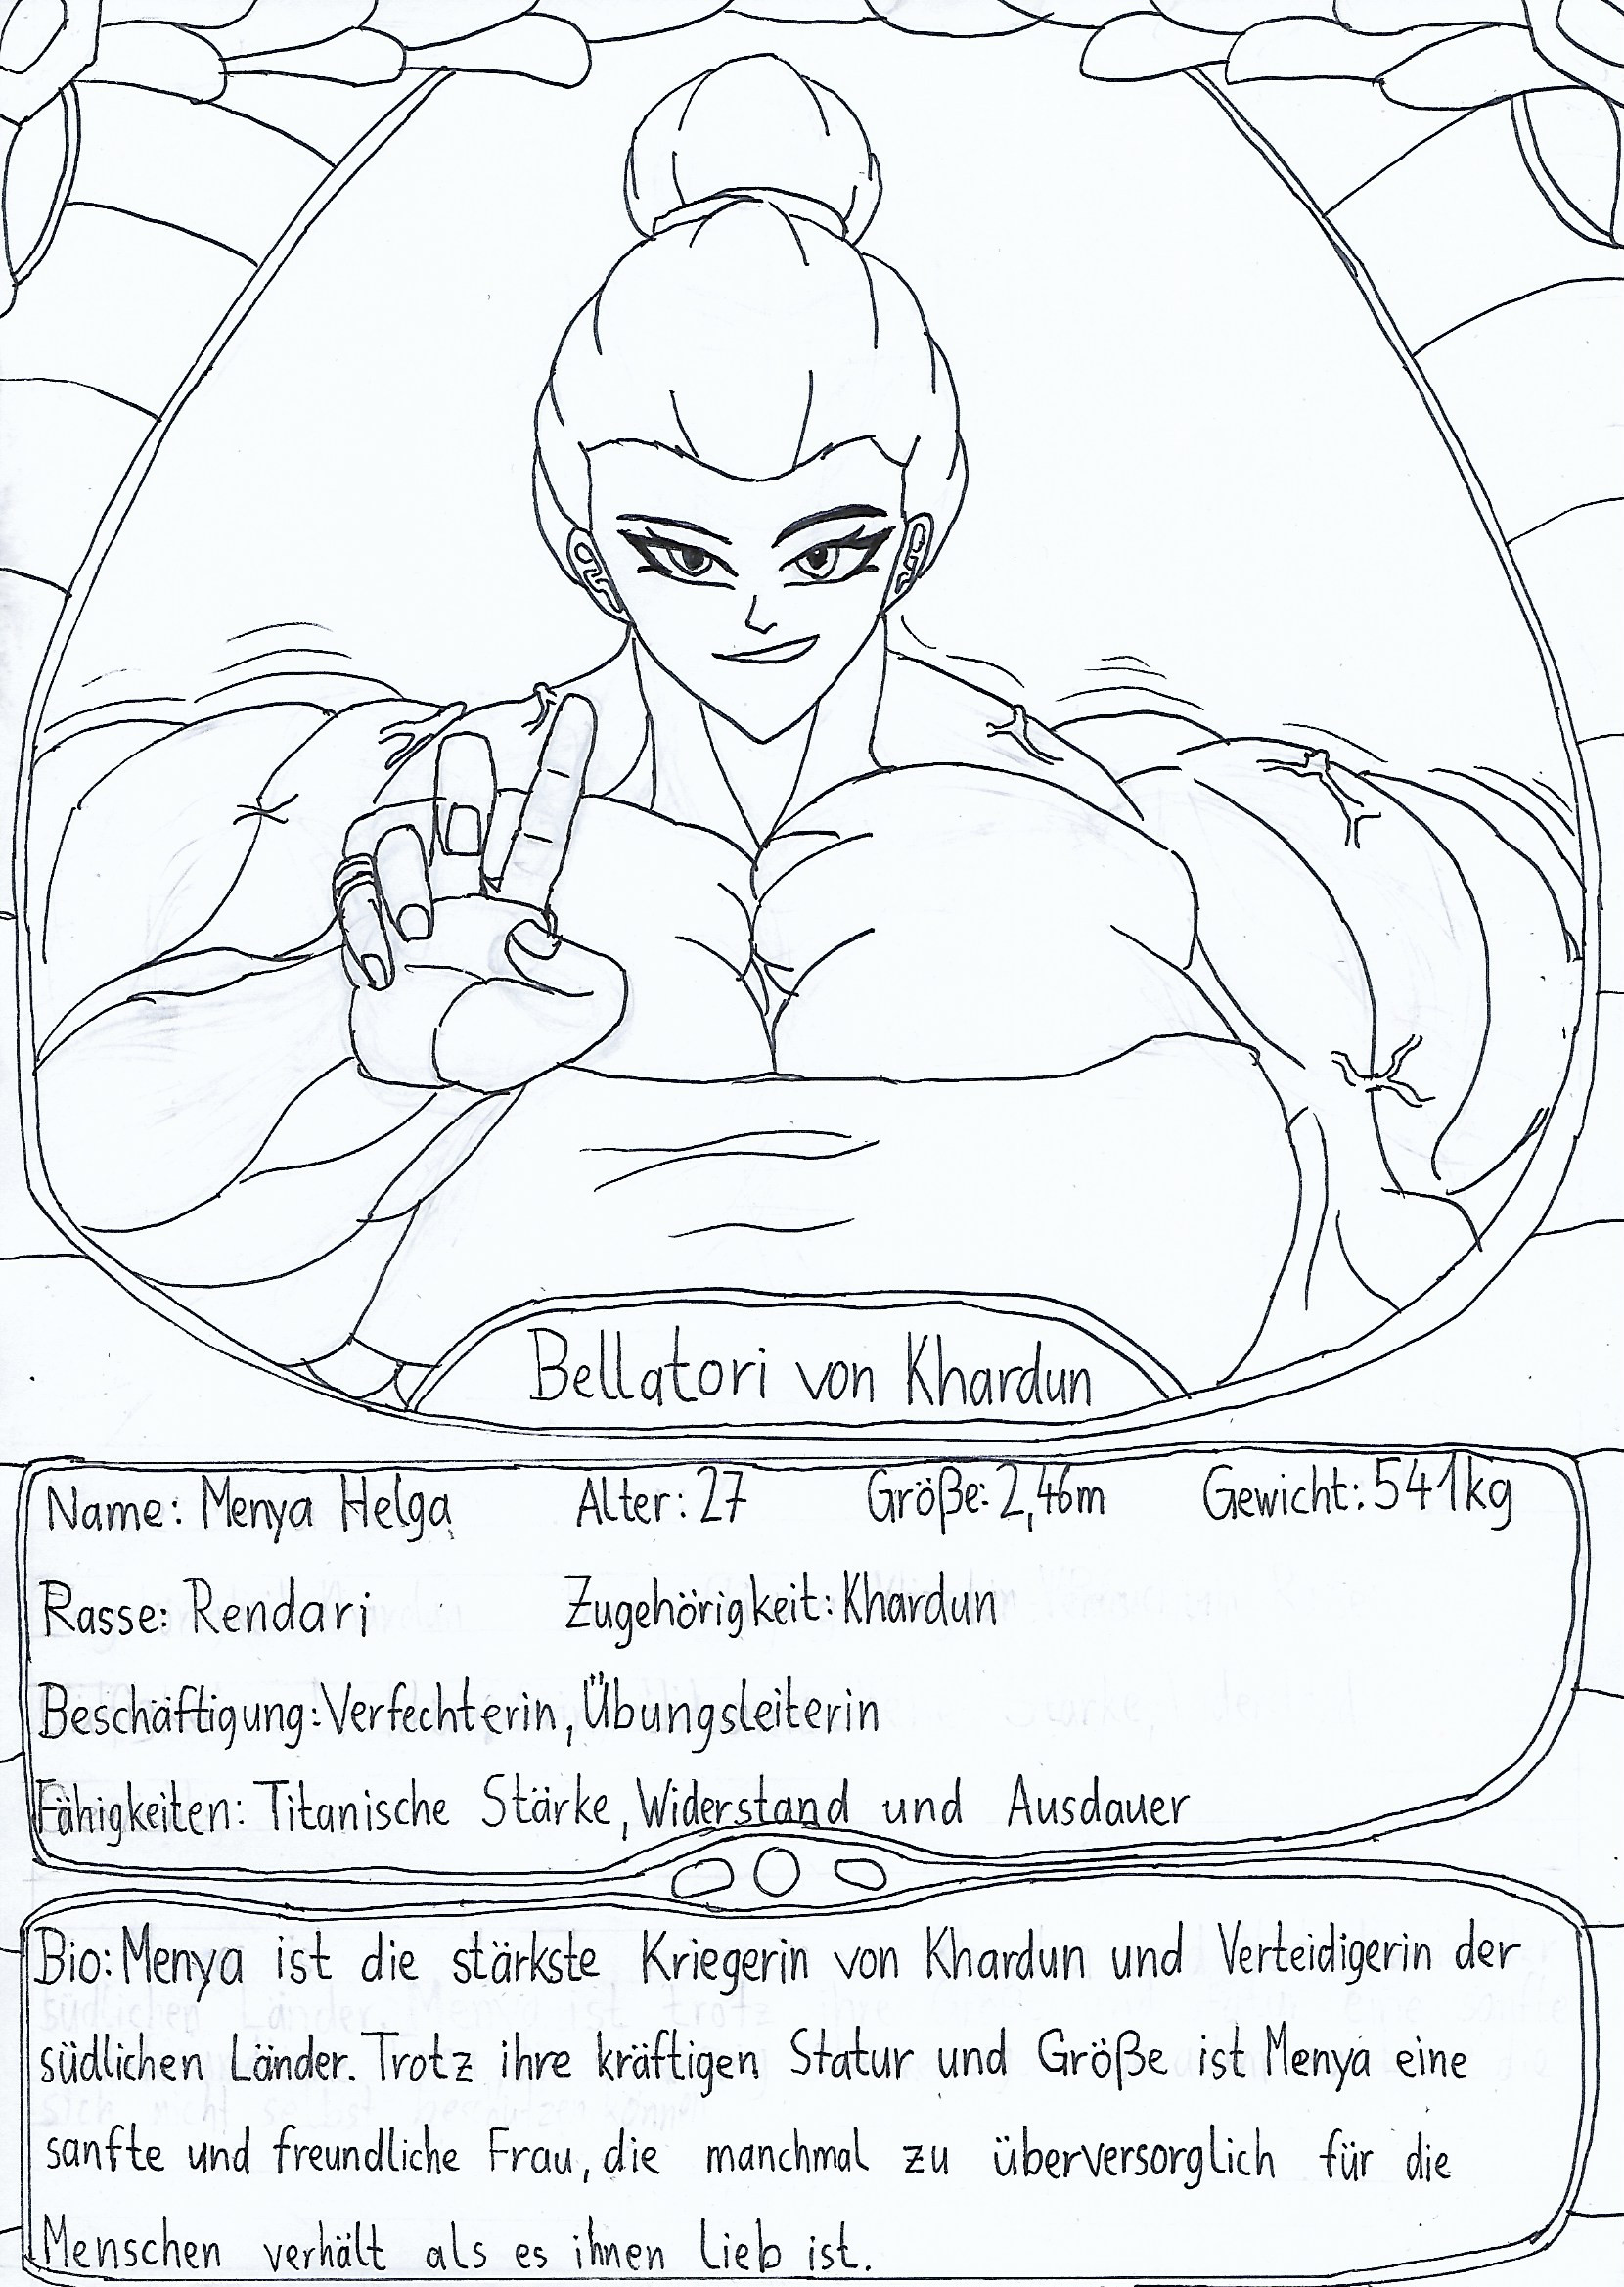 Bellatori von Khardun
Name: Menya Helga Alter: 27 Größe: 2,46m Gewicht: 541kg
Rasse: Rendari Zugehörigkeit: Khardun
Beschäftigung: Verfechterin, Übungsleiterin
Fähigkeiten: Titanische Stärke, Widerstand und Ausdauer
Bio: Menya ist die stärkste Kriegerin von Khardun und Verteidigerin der
südlichen Länder. Trotz ihre kräftigen Statur und Größe ist Menya eine
sanfte und freundliche Frau, die manchmal zu überversorglich für die
Menschen verhält als es ihnen Lieb ist.